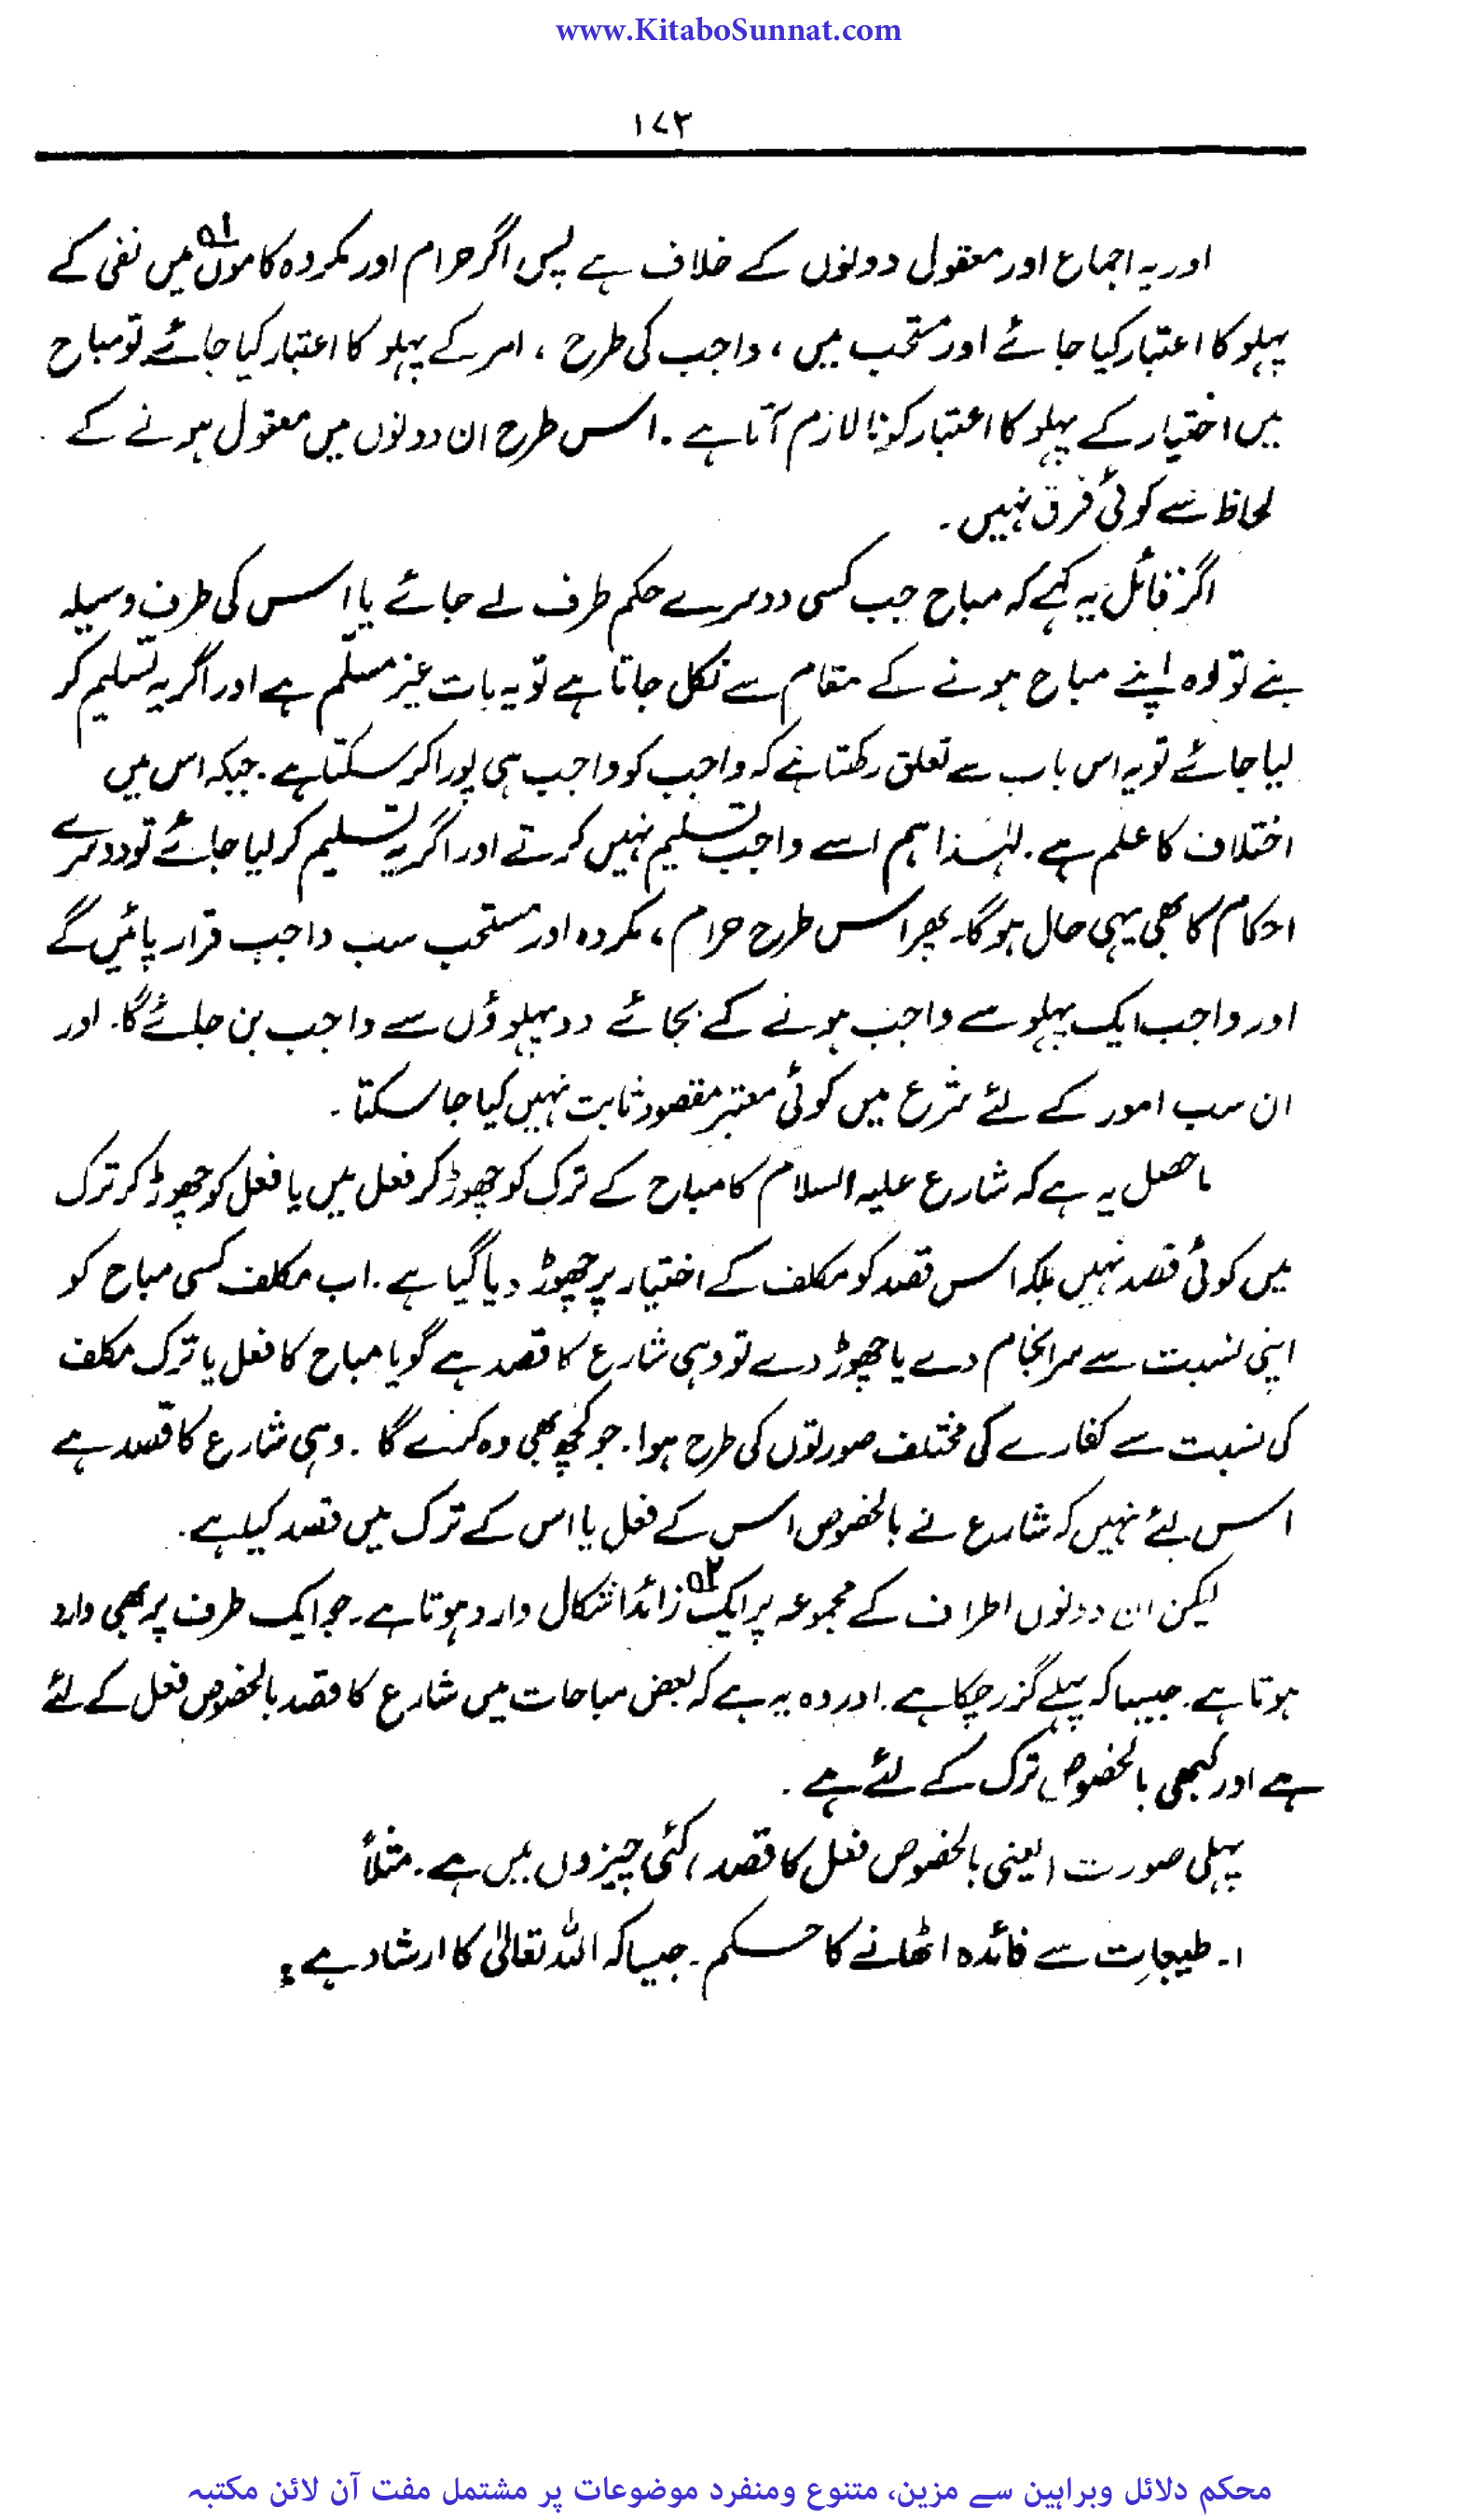 www.KitaboSunnat.com
۱۷۳
اور یہ اجماع اور معقول دونوں کے خلاف ہے پس اگر حرام اور مکروہ کاموں۵۱ میں نفی کے
پہلو کا اعتبار کیا جائے اور مستحب میں ، واجب کی طرح ، امر کے پہلو کا اعتبار کیا جائے تو مباح
میں اختیار کے پہلو کا اعتبار کرنا لازم آتا ہے ۔ اس طرح ان دونوں میں معقول ہونے کے
لحاظ سے کوئی فرق نہیں ۔
اگر قائل یہ کہے کہ مباح جب کسی دوسرے حکم طرف لے جائے یا اس کی طرف وسیلہ
بنے تو وہ اپنے مباح ہونے کے مقام سے نکل جاتا ہے تو یہ بات غیر مسلم ہے اور اگر یہ تسلیم کر
لیا جائے تو یہ اس باب سے تعلق رکھتا ہے کہ واجب کو واجب ہی پورا کر سکتا ہے ۔ جبکہ اس میں
اختلاف کا علم ہے ۔ لہٰذا ہم اسے واجب تسلیم نہیں کرتے اور اگر یہ تسلیم کر لیا جائے تو دوسرے
احکام کا بھی یہی حال ہو گا ۔ پھر اس طرح حرام ، مکروہ اور مستحب سب واجب قرار پائیں گے
اور واجب ایک پہلو سے واجب ہونے کے بجائے دو پہلوؤں سے واجب بن جائے گا ۔ اور
ان سب امور کے لئے شرع میں کوئی معتبر مقصود ثابت نہیں کیا جا سکتا ۔
ماحصل یہ ہے کہ شارع علیہ السلام کا مباح کے ترک کو چھوڑ کر فعل میں یا فعل کو چھوڑ کر ترک
میں کوئی قصد نہیں بلکہ اس قصد کو مکلف کے اختیار پر چھوڑ دیا گیا ہے ۔ اب مکلف کسی مباح کو
اپنی نسبت سے سرانجام دے یا چھوڑ دے تو وہی شارع کا قصد ہے گویا مباح کا فعل یا ترک مکلف
کی نسبت سے کفارے کی مختلف صورتوں کی طرح ہوا ۔ جو کچھ بھی وہ کرے گا ۔ وہی شارع کا قصد ہے
اس لئے نہیں کہ شارع نے بالخصوص اس کے فعل یا اس کے ترک میں قصد کیا ہے ۔
لیکن ان دونوں اطراف کے مجموعہ پر ایک۵۲ زائد اشکال وارد ہوتا ہے ۔ جو ایک طرف پر بھی وارد
ہوتا ہے ۔ جیسا کہ پہلے گزر چکا ہے ۔ اور وہ یہ ہے کہ بعض مباحات میں شارع کا قصد بالخصوص فعل کے لئے
ہے اور کبھی بالخصوص ترک کے لئے ہے ۔
پہلی صورت (یعنی بالخصوص فعل کا قصد) کئی چیزوں میں ہے ۔ مثلاً
۱۔ طیبات سے فائدہ اٹھانے کا حکم ۔ جیسا کہ اللہ تعالیٰ کا ارشاد ہے :
محکم دلائل وبراہین سے مزین، متنوع ومنفرد موضوعات پر مشتمل مفت آن لائن مکتبہ